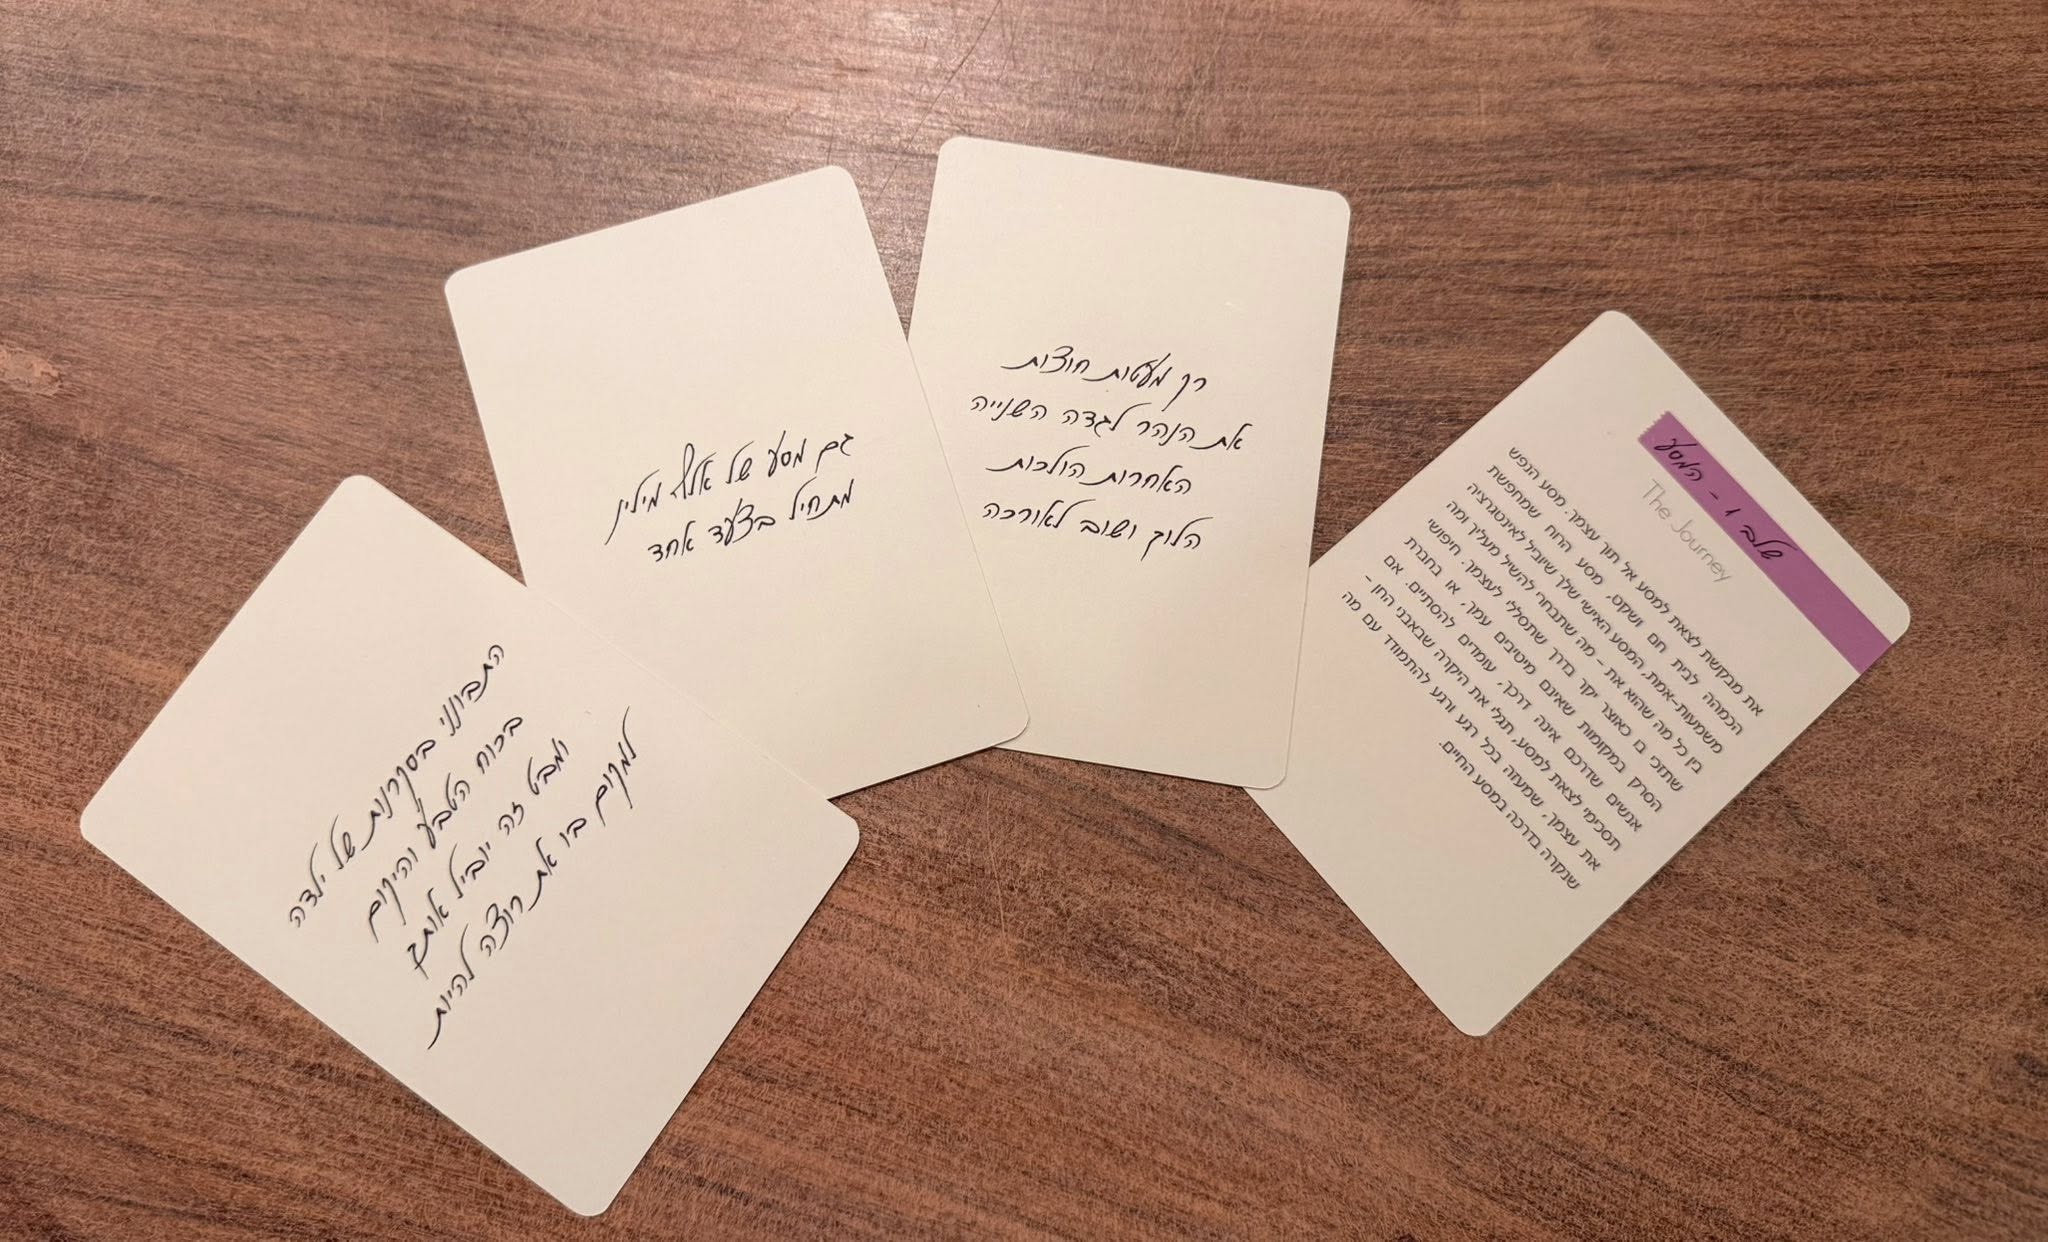 שלב 1 - המסע
The Journey
את מבקשת לצאת למסע אל תוך עצמך. מסע הנפש
הכמהה לבית חם ושקט, מסע הרוח שמחפשת
משמעות-אמת, המסע האישי שלך שיוביל לאינטגרציה
בין כל מה שהוא את - מה שתבחרי להשיל מעליך ומה
שתזכי בו כאוצר יקר בדרך שתסללי לעצמך. חיפושי
הסרק במקומות שאינם מיטיבים עמך, או בחברת
אנשים שדרכם אינה דרכך, עומדים להסתיים. אם
תסכימי לצאת למסע, תגלי את היקרה שבאבני החן -
את עצמך, שמעזה בכל רגע ורגע להתמודד עם מה
שנקרה בדרכה במסע החיים.
רק מעטות חוצות
את הנהר לגדה השנייה
האחרות הולכות
הלוך ושוב לאורכה
גם מסע של אלף מילין
מתחיל בצעד אחד
התבונני בסקרנות של ילדה
בכוח הטבע והיקום
ומבט זה יוביל אותך
למקום בו את רוצה להיות